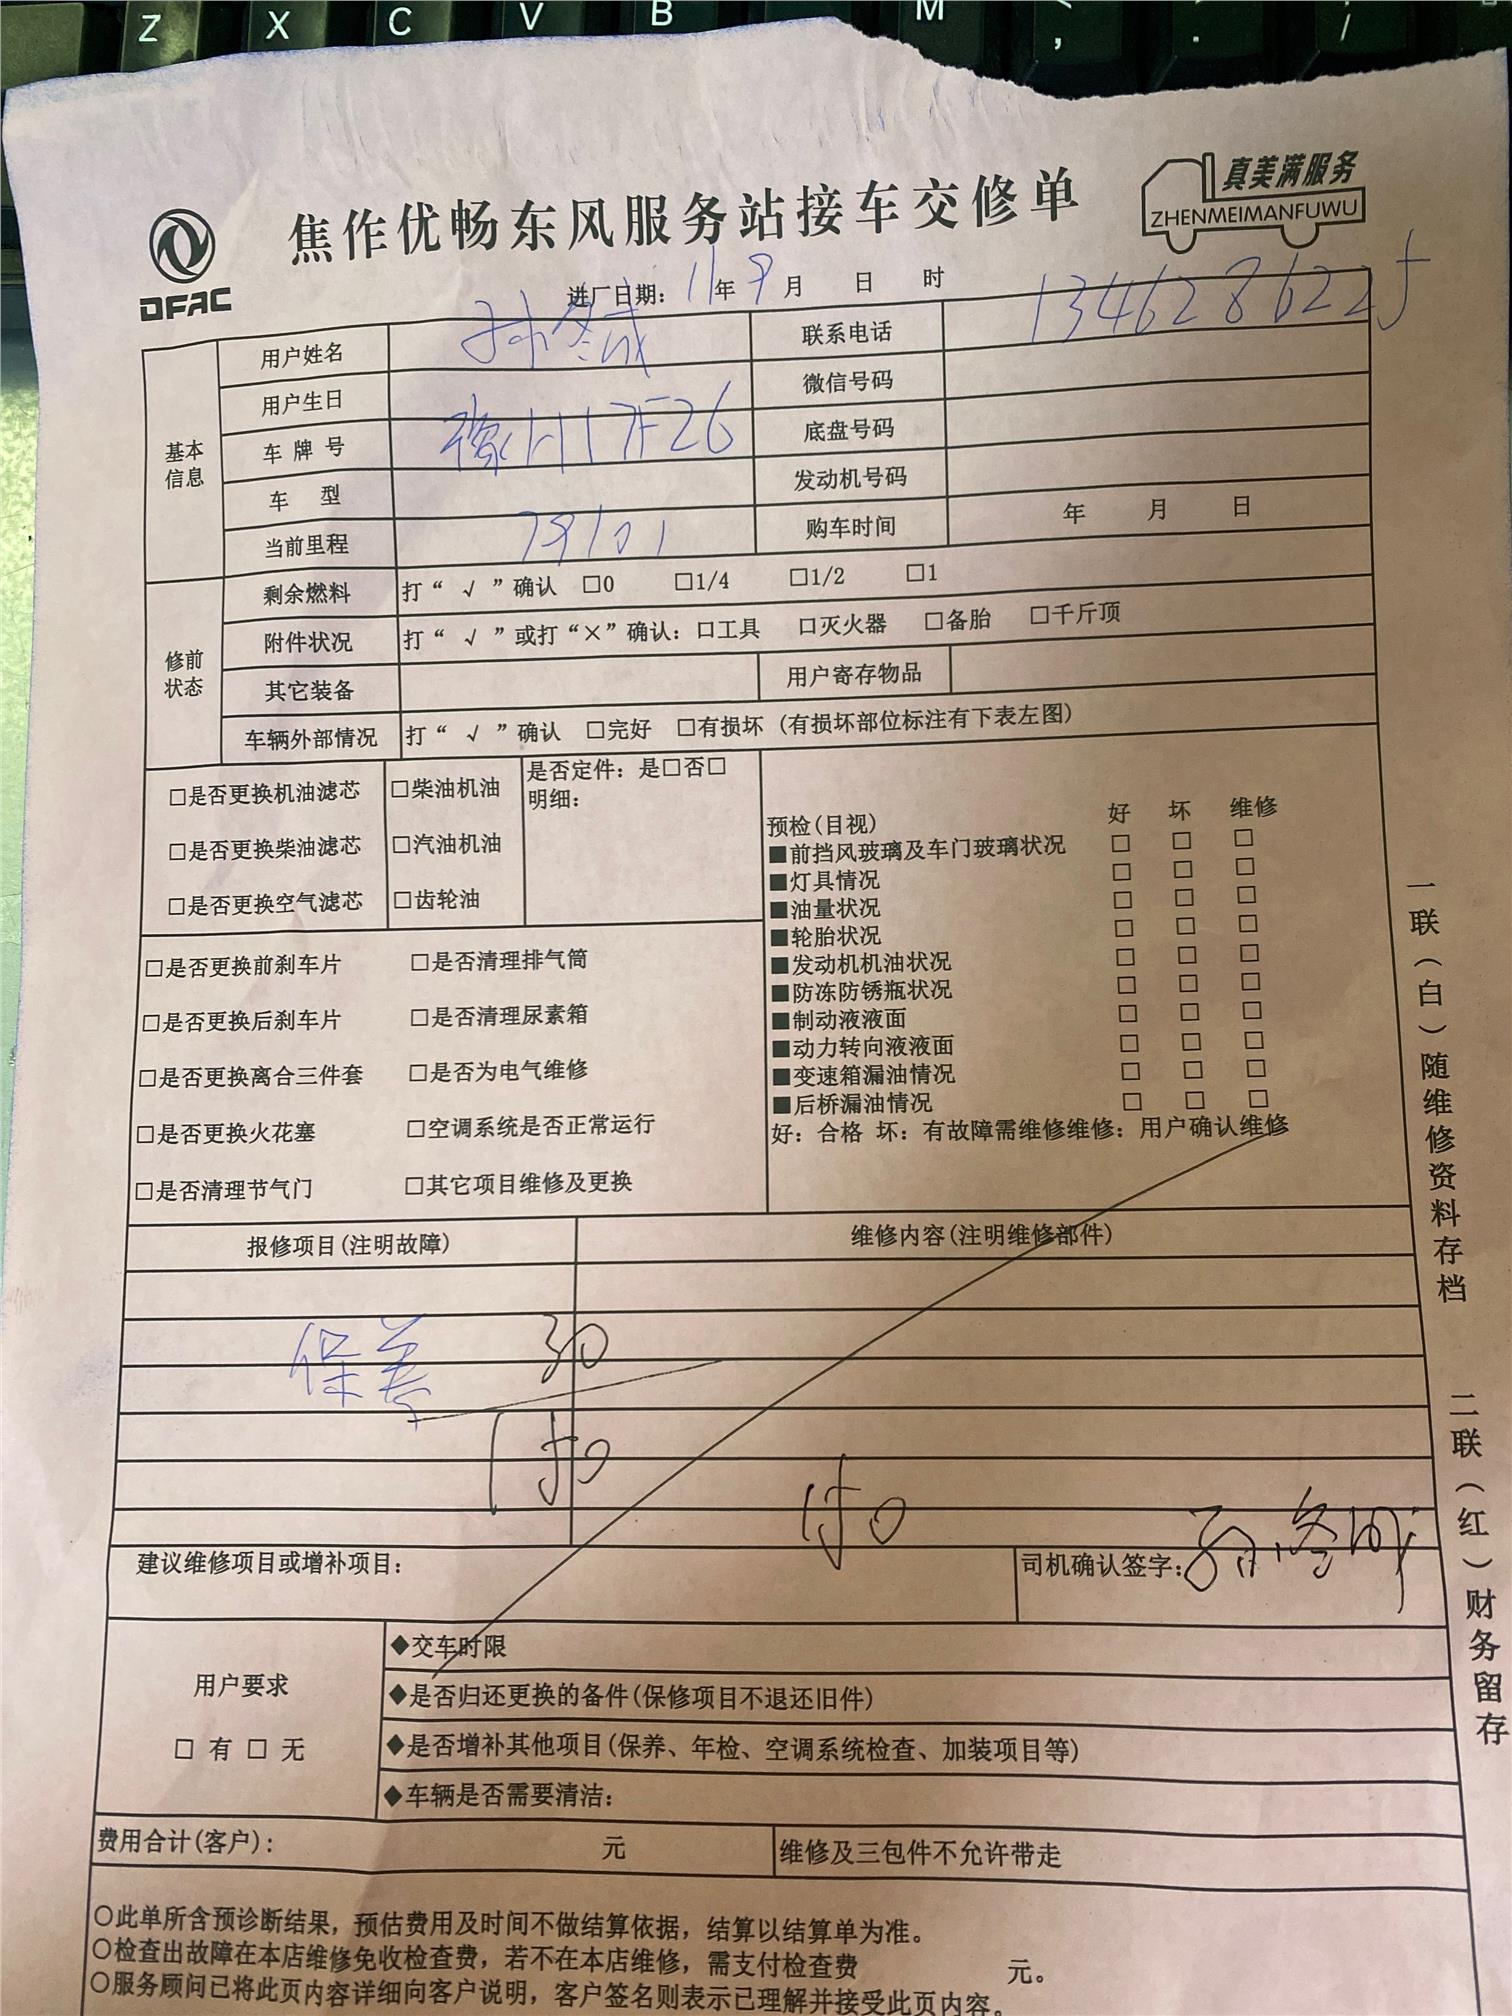 Z X C V B M < > /
, .
真美满服务
ZHENMEIMANFUWU
DFAC
焦作优畅东风服务站接车交修单
进厂日期: 11年9月 日 时
基本信息
用户姓名 孙冬成 联系电话 1346286225
用户生日 微信号码
车牌号 豫H17F26 底盘号码
车 型 发动机号码
当前里程 79101 购车时间 年 月 日
修前状态
剩余燃料 打“ √ ”确认 □0 □1/4 □1/2 □1
附件状况 打“ √ ”或打“×”确认: □工具 □灭火器 □备胎 □千斤顶
其它装备 用户寄存物品
车辆外部情况 打“ √ ”确认 □完好 □有损坏 (有损坏部位标注有下表左图)
□是否更换机油滤芯 □柴油机油 是否定件: 是□否□
明细:
□是否更换柴油滤芯 □汽油机油
□是否更换空气滤芯 □齿轮油
□是否更换前刹车片 □是否清理排气筒
□是否更换后刹车片 □是否清理尿素箱
□是否更换离合三件套 □是否为电气维修
□是否更换火花塞 □空调系统是否正常运行
□是否清理节气门 □其它项目维修及更换
预检(目视) 好 坏 维修
■前挡风玻璃及车门玻璃状况 □ □ □
■灯具情况 □ □ □
■油量状况 □ □ □
■轮胎状况 □ □ □
■发动机机油状况 □ □ □
■防冻防锈瓶状况 □ □ □
■制动液液面 □ □ □
■动力转向液液面 □ □ □
■变速箱漏油情况 □ □ □
■后桥漏油情况 □ □ □
好: 合格 坏: 有故障需维修维修: 用户确认维修
报修项目(注明故障) 维修内容(注明维修部件)
保养 30
150
150
建议维修项目或增补项目:
司机确认签字: 孙冬成
用户要求
□ 有 □ 无
◆交车时限
◆是否归还更换的备件(保修项目不退还旧件)
◆是否增补其他项目(保养、年检、空调系统检查、加装项目等)
◆车辆是否需要清洁:
费用合计(客户): 元 维修及三包件不允许带走
○此单所含预诊断结果，预估费用及时间不做结算依据，结算以结算单为准。
○检查出故障在本店维修免收检查费，若不在本店维修，需支付检查费 元。
○服务顾问已将此页内容详细向客户说明，客户签名则表示已理解并接受此页内容。
一联(白)随维修资料存档
二联(红)财务留存